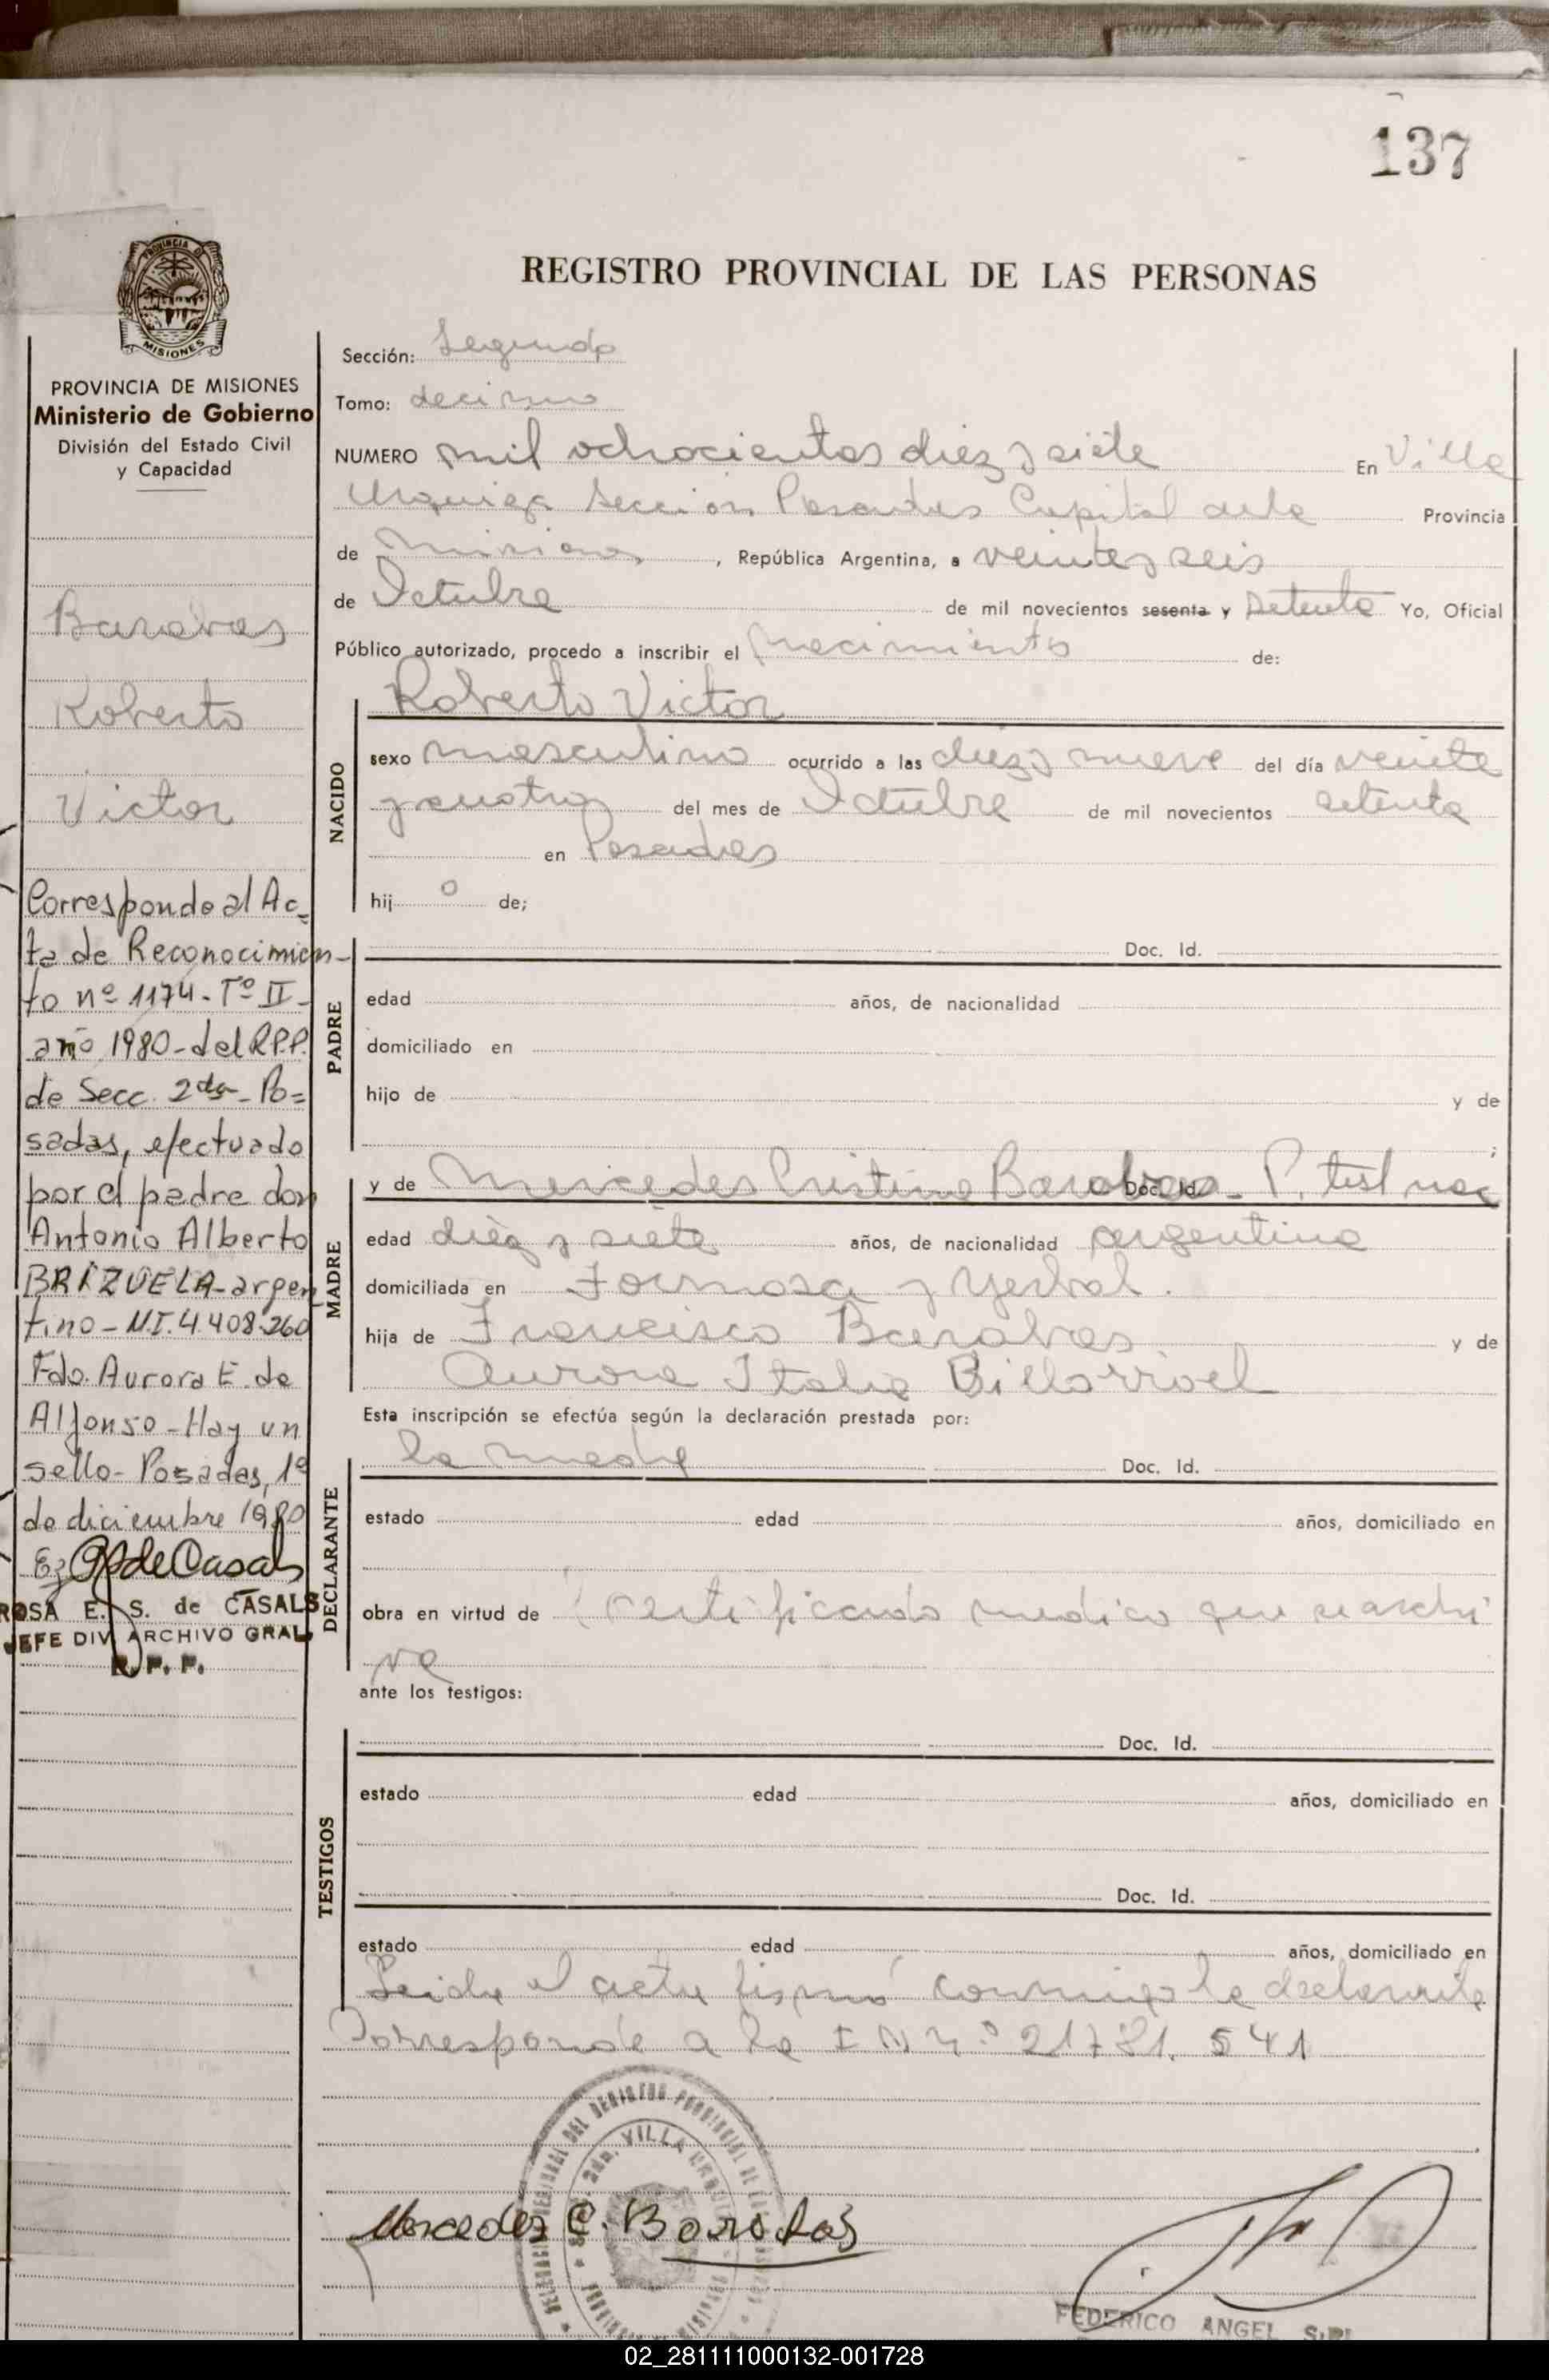 137
PROVINCIA DE
MISIONES
PROVINCIA DE MISIONES
Ministerio de Gobierno
División del Estado Civil
y Capacidad
Barabas
Roberto
Victor
Corresponde al Ac=
ta de Reconocimien-
to nº 1174- Tº II-
año 1980- del R.P.P.
de Secc. 2da- Po=
sadas, efectuado
por el padre don
Antonio Alberto
BRIZUELA- argen_
tino- M.I. 4.408.260
Fdo. Aurora E. de
Alfonso- Hay un
sello- Posadas, 1º
de diciembre 1980
de Casals
ROSA E. S. de CASALS
JEFE DIV. ARCHIVO GRAL.
R. P. P.
REGISTRO PROVINCIAL DE LAS PERSONAS
Sección: Segunda
Tomo: decimo
NUMERO mil ochocientos diez y siete En Villa
Urquiza Sección Posadas Capital de la Provincia
de Misiones, República Argentina, a veinte y seis
de Octubre de mil novecientos sesenta y Setenta Yo, Oficial
Público autorizado, procedo a inscribir el nacimiento de:
NACIDO
Roberto Victor
sexo masculino ocurrido a las diez y nueve del día veinte
y cuatro del mes de Octubre de mil novecientos setenta
en Posadas
hij o de;
PADRE
Doc. Id.
edad años, de nacionalidad
domiciliado en
hijo de y de
;
MADRE
y de Mercedes Cristina Barabas - Doc. Id. P. test nac
edad diez y siete años, de nacionalidad argentina
domiciliada en Formosa y Yerbal.
hija de Francisco Barabas y de
Aurora Italia Billarroel
Esta inscripción se efectúa según la declaración prestada por:
DECLARANTE
la madre Doc. Id.
estado edad años, domiciliado en
obra en virtud de certificado medico que se archi
va
ante los testigos:
TESTIGOS
Doc. Id.
estado edad años, domiciliado en
Doc. Id.
estado edad años, domiciliado en
Leida el acta firmó conmigo la declarante
Corresponde a la I N n.º 21.781.541
VILLA URQUIZA
Mercedes C. Barabas
FEDERICO ANGEL
02_281111000132-001728